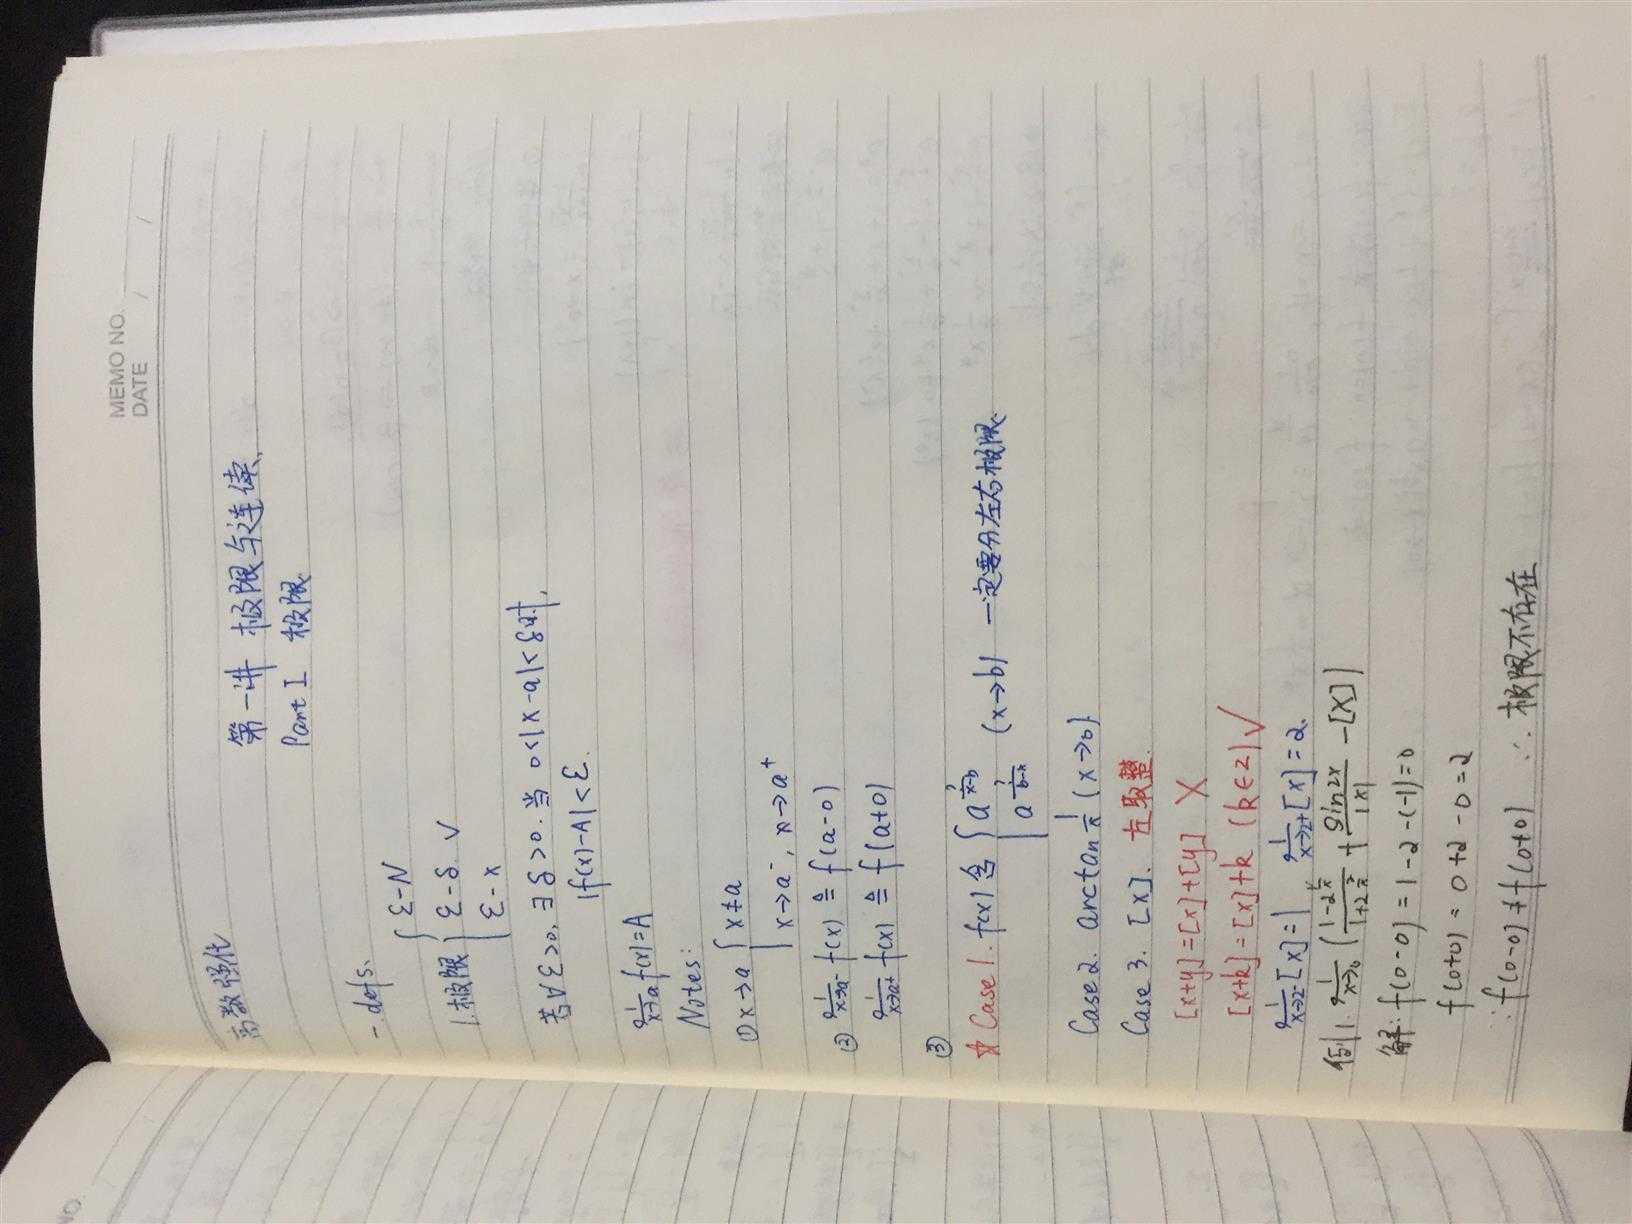 MEMO NO.
DATE / /
高数强化
第一讲 极限与连续
Part I 极限
一 defs.
1.极限 { ε-N
ε-δ √
ε-x
若∀ε>0,∃δ>0.当 0<|x-a|<δ时,
|f(x)-A|<ε.
lim x→a f(x)=A
Notes:
① x→a { x≠a
x→a⁻, x→a⁺
② lim x→a⁻ f(x) ≜ f(a-0)
lim x→a⁺ f(x) ≜ f(a+0)
③
☆ Case 1. f(x)含 { a^(1/(x-b))
a^(1/(b-x)) (x→b) 一定要分左右极限.
Case 2. arctan 1/x (x→b)
Case 3. [x]. 左取整.
[x+y]=[x]+[y] ×
[x+k]=[x]+k (k∈Z) √
lim x→2⁻ [x]=1 lim x→2⁺ [x]=2.
例1. lim x→0 ( (1-2^(1/x))/(1+2^(1/x)) + sin2x/|x| - [x] )
解: f(0-0)=1-2-(-1)=0
f(0+0)=0+2-0=2
∵ f(0-0)≠f(0+0) ∴ 极限不存在
NO.